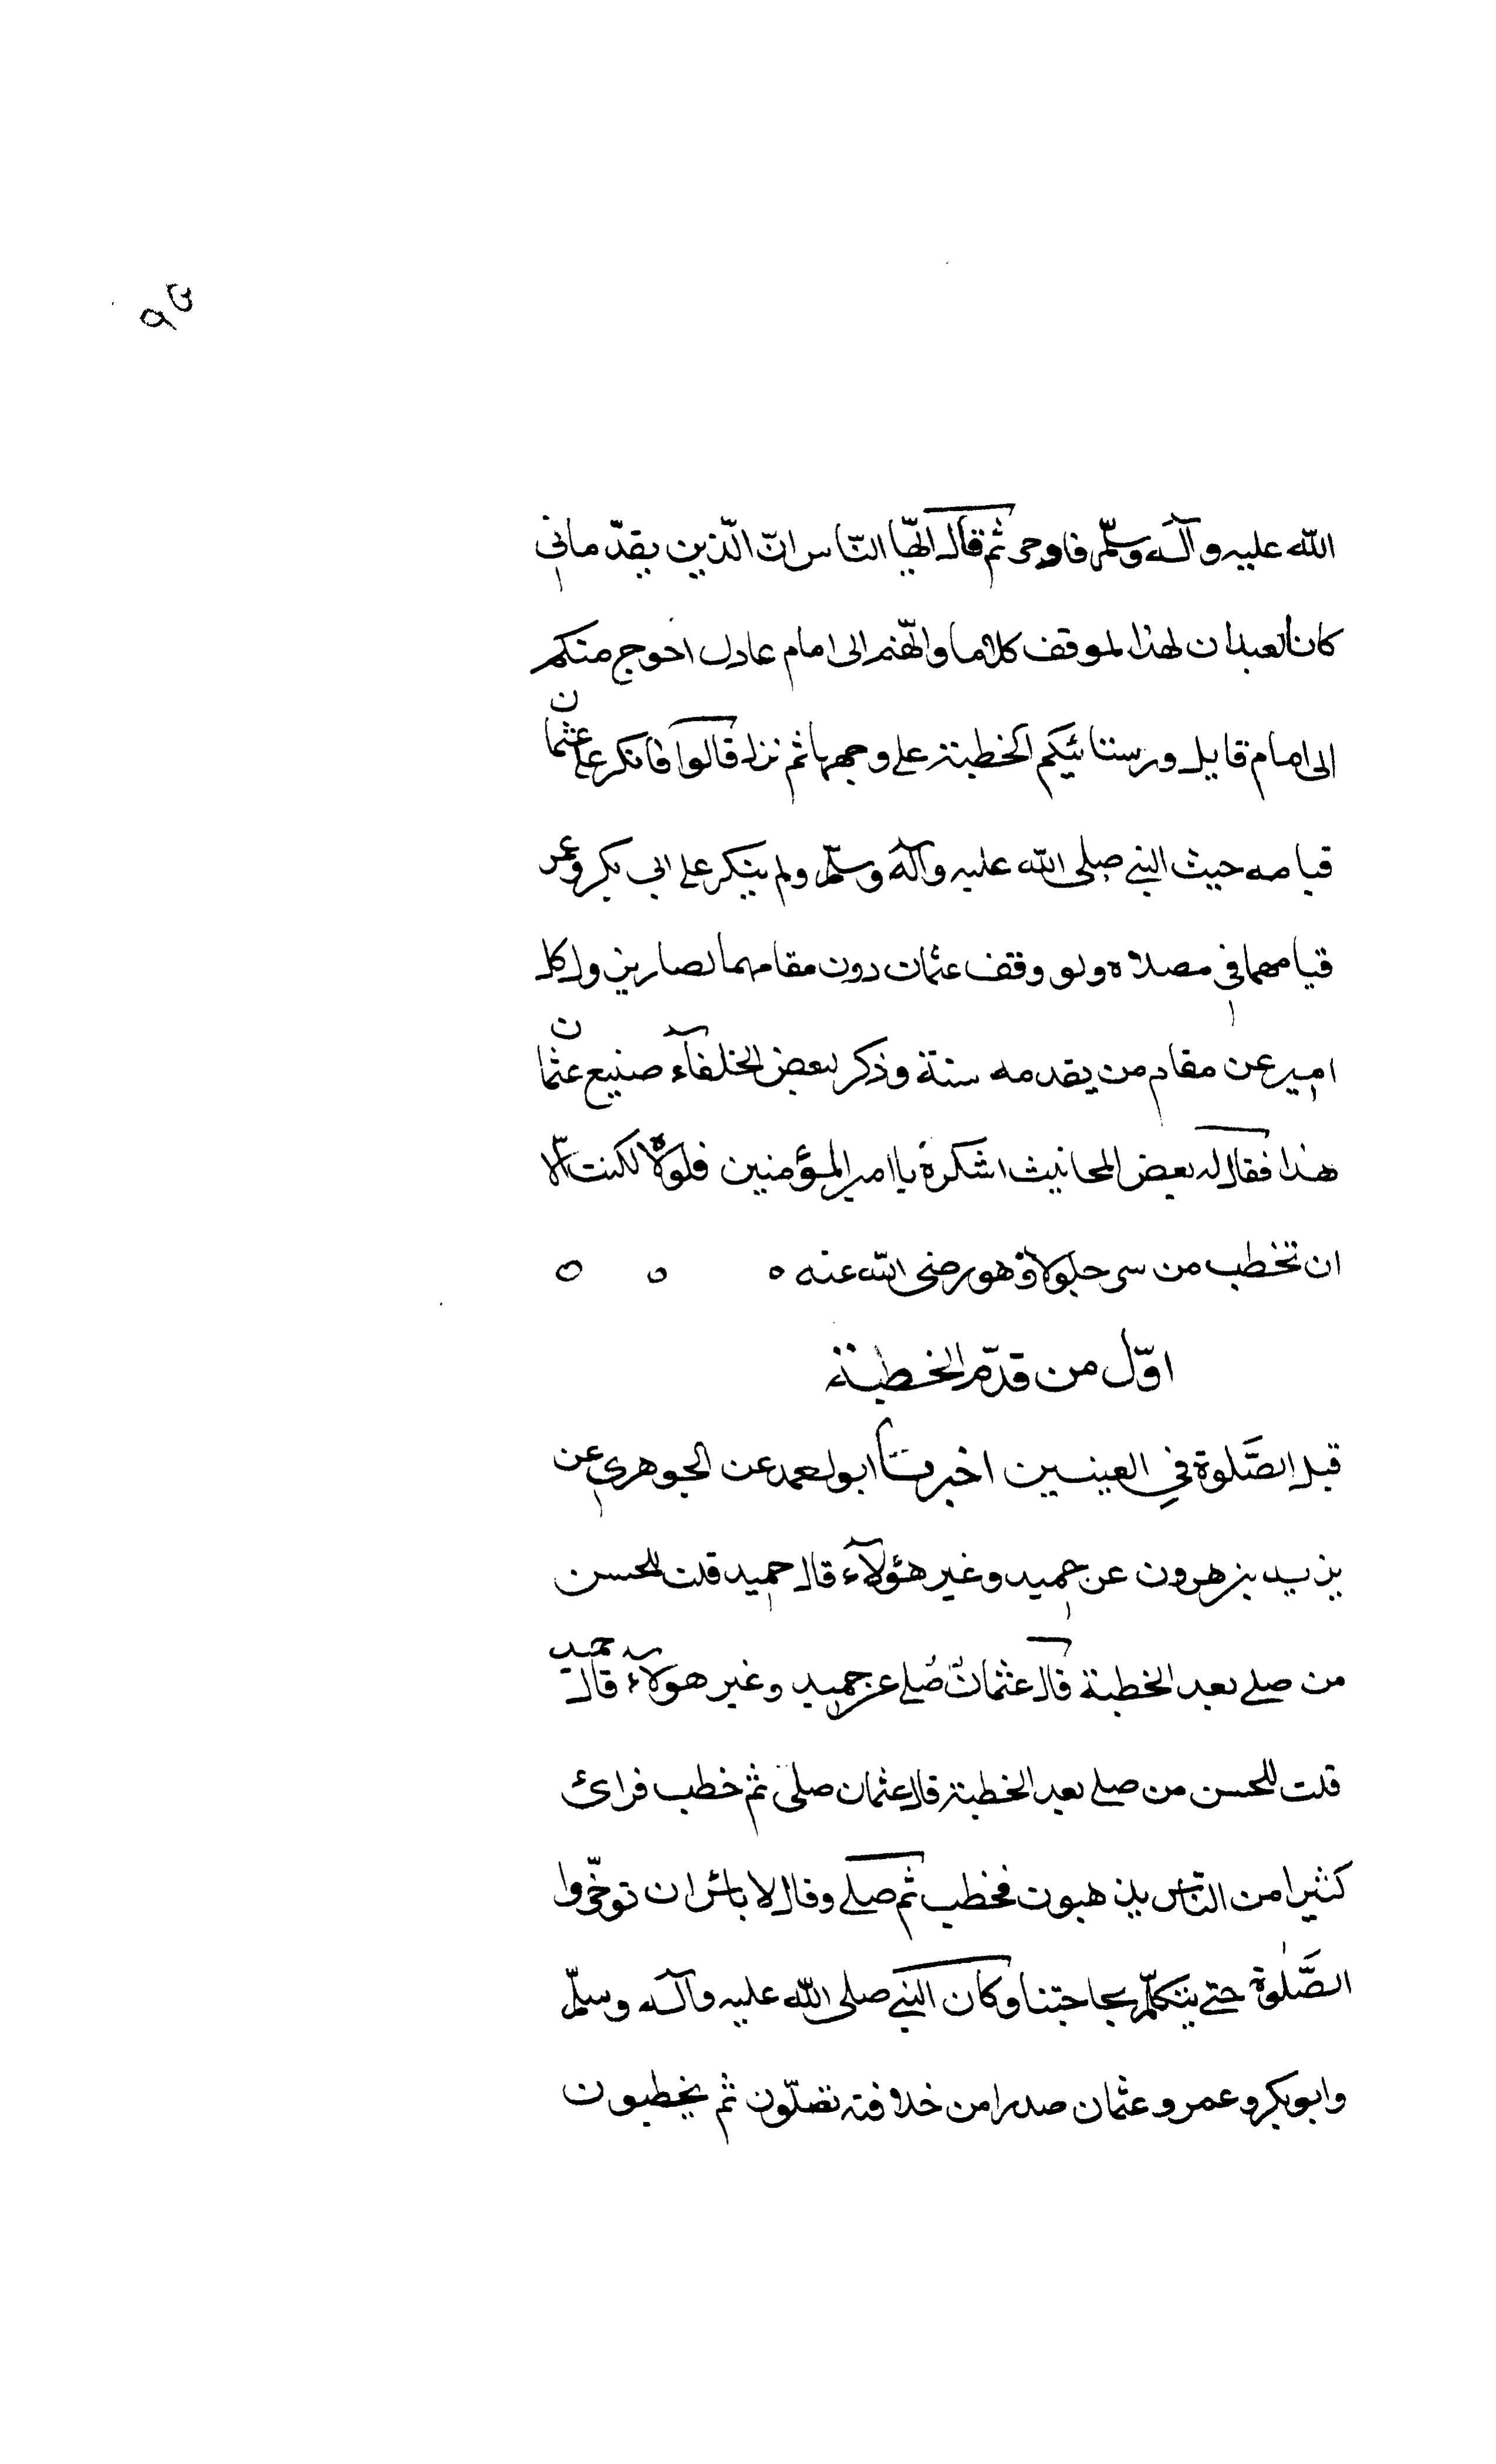 الله عليه وآله وسلّم فاوحى ثم قال ايّها النّاس انّ الّذين يقدّماني
كانا يعدان لهذا لموقف كلاما وانّهم الى امام عادل احوج منكم
الى امام قايل وستائيكم الخطبة على وجهها ثم نزل قالوا فانكر على عثمان
قيامه حيث النبي صلى الله عليه وآله وسلّم ولم ينكر على ابي بكر وعمر
قيامهما في مصلاه ولو وقف عثمان دون مقامهما لصار نزول كل
امير عن مقام من يقدمه سنة وذكر بعض الخلفآء صنيع عثمان
هذا فقال له بعض المحانيث اشكره ياامير المؤمنين فلولاه لكنت الآ
ان تخطب من سر جلولا وهو رضى الله عنه ٥ ٥ ٥
اوّل من قدّم الخطبة
قبل الصَّلوة في العيدين اخبرنا ابو احمد عن الجوهري عن
يزيد بن هرون عن حميد وغير هؤلآء قال حميد قلت للحسن
من صلى بعد الخطبة قال عثمان صلى عن حميد وغير هولاء قال حميد
قلت للحسن من صلى بعد الخطبة قال عثمان صلى ثم خطب فرائ
كثيرا من النّاس يذهبون فخطب ثم صلى وقال لا باس ان توخّروا
الصَّلوة حتى يتكلّم بحاجتنا وكان النبي صلى الله عليه وآله وسلّم
وابوبكر وعمر وعثمان صدرا من خلافته تصلّون ثم يخطبون